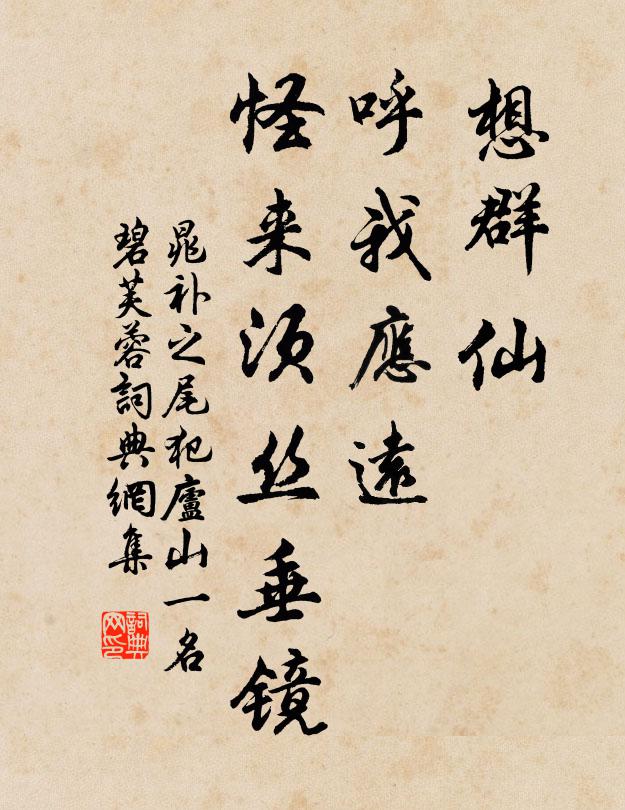 想群仙
呼我應遠
怪来须丝垂镜
晁补之尾犯廬山一名
碧芙蓉詞典網集
詞典网印